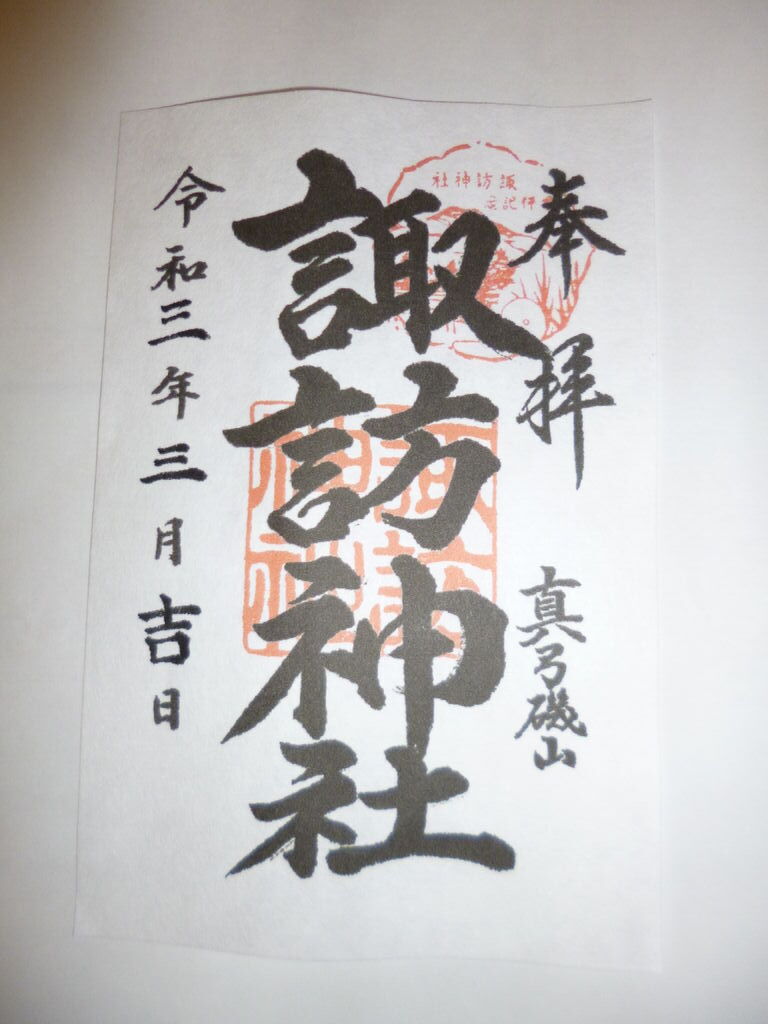 奉拝
真弓磯山
諏訪神社
令和三年三月吉日
諏訪神社
諏訪神社